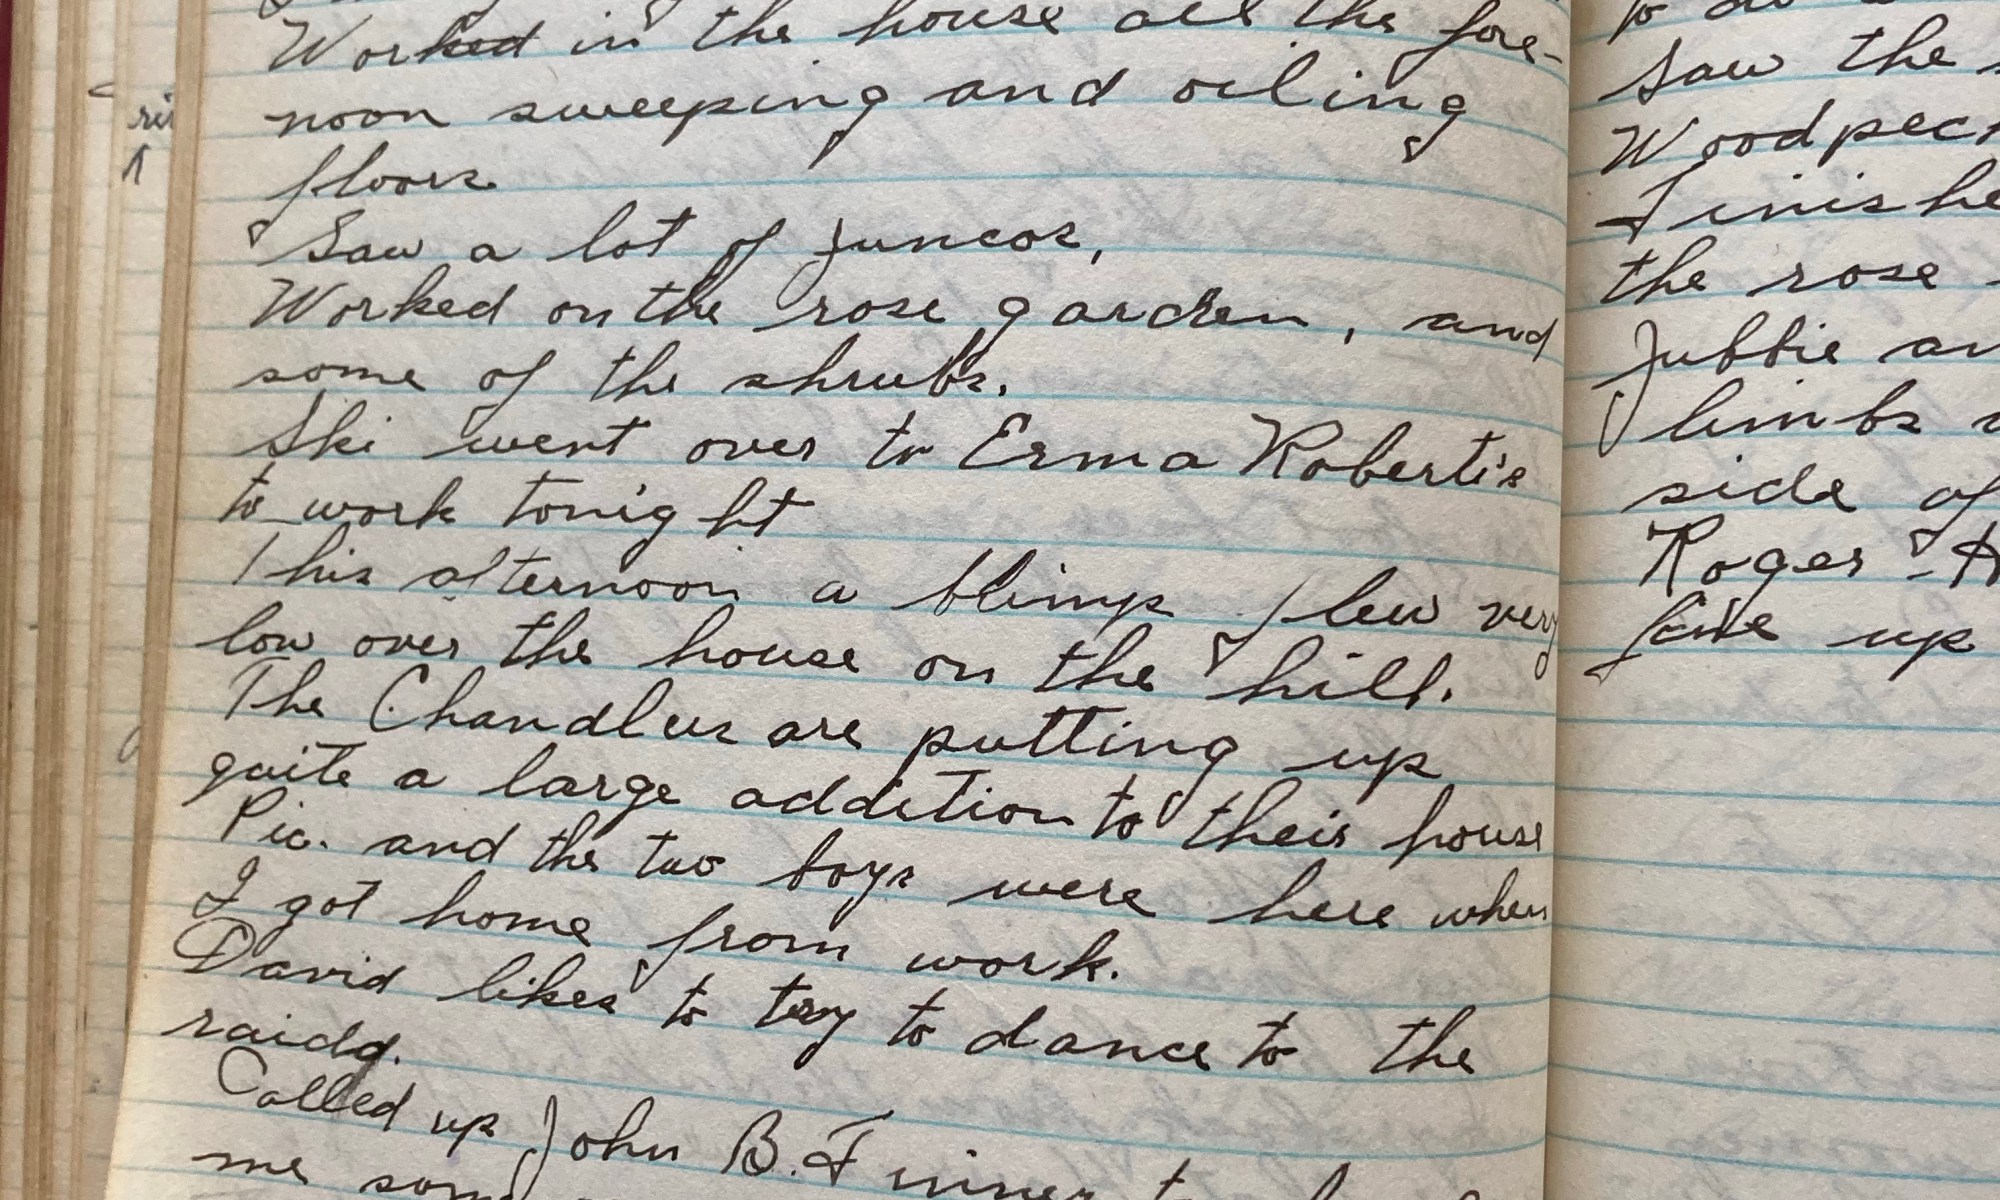 Worked in the house all the fore-
noon sweeping and oiling
floors.
Saw a lot of juncos,
Worked on the rose garden, and
some of the shrubs.
Ski went over to Erma Robert's
to work tonight
This afternoon a blimp flew very
low over the house on the hill.
The Chandlers are putting up
quite a large addition to their house
Pic. and the two boys were here when
I got home from work.
David likes to try to dance to the
raido.
Called up John B.
me
Saw the
Woodpeck
Finishe
the rose
Jubbie
limbs
side of
Roger
up